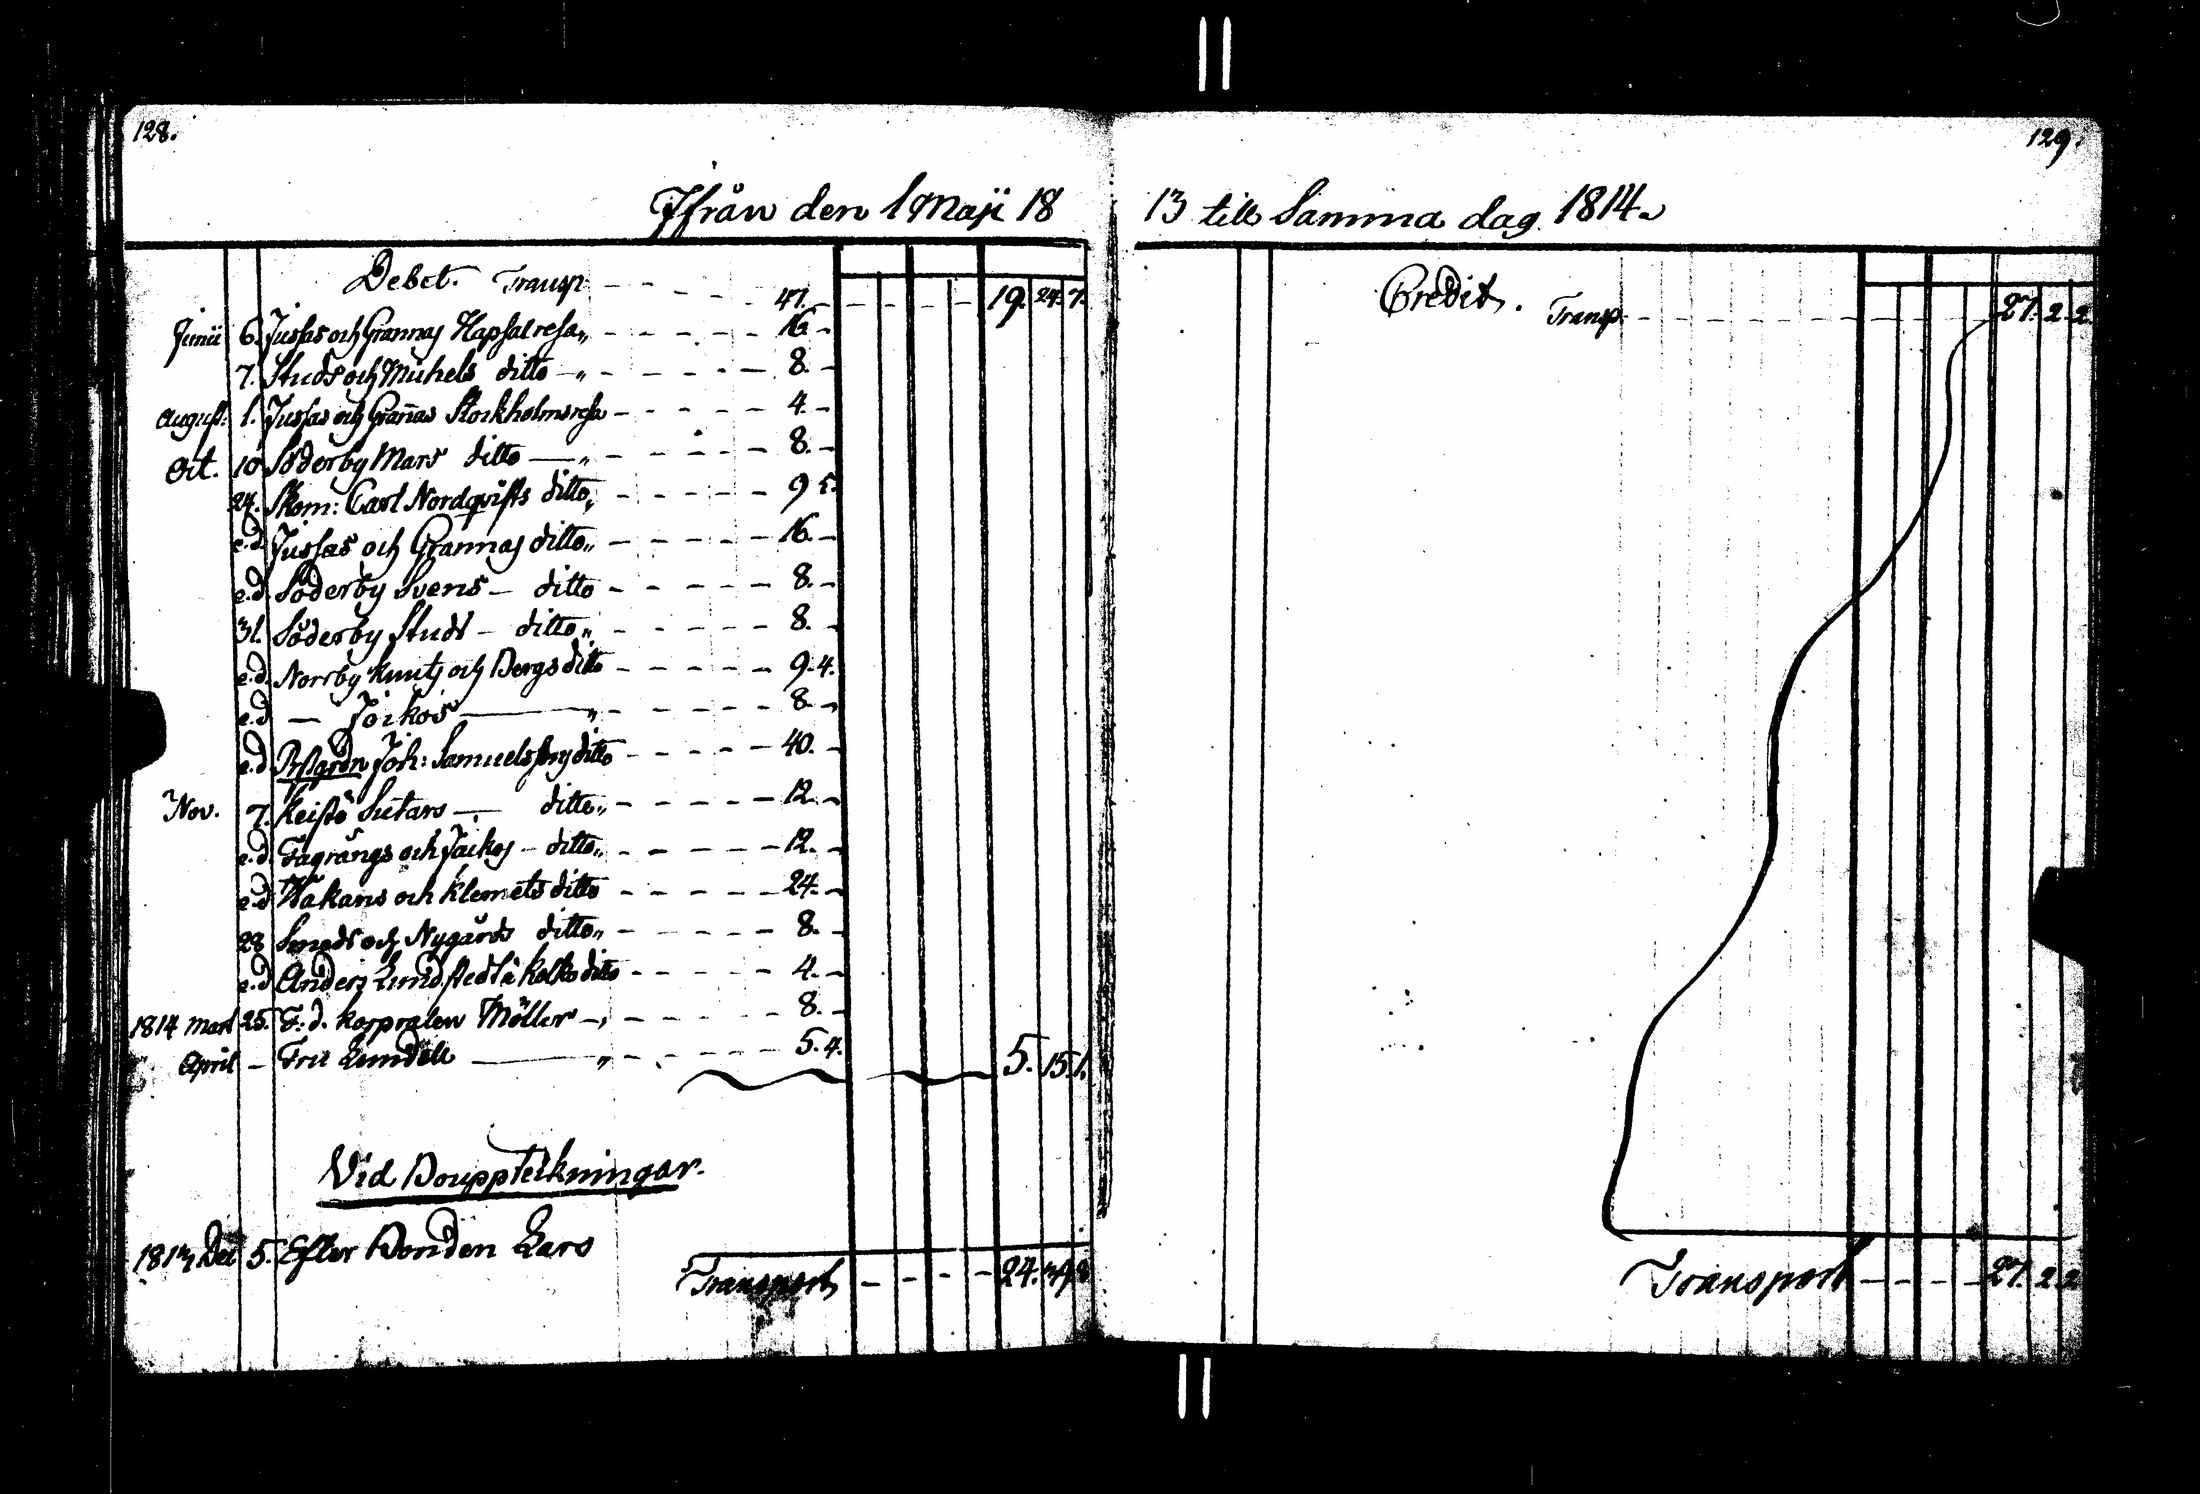 128.
Ifrån den 1 Maji 18
Debet. Transp. 47. 19. 24. 7.
Junii 6. Jussas och Grannas Hapsal resa 16.
7. Studs och Michels ditto 8.
August: 1. Jussas och Grañas Stockholmsresa 4.
Oct. 10 Söderby Mårs ditto 8.
24. Skom: Carl Nordqvists ditto 9 5.
e.d. Jussas och Grannas ditto 16.
e.d. Söderby Svens ditto 8.
31. Söderby Studs ditto 8.
e.d. Norrby Knuts och Bergs ditto 9. 4.
e.d — Joikos 8
e.d Joh: Samuelssons ditto 40.
Nov. 7. Keistö ditto 12.
e.d. Fagrängs och Jäikos ditto 12.
e.d. Wakars och Klemets ditto 24.
28 Smeds och Nygårds ditto 8.
e.d Anders Lundstedt à Kalko ditto 4.
1814 Mart 25. F: d. korpralen Möller 8.
April — Fru Lundell 5. 4. 5. 15. 1.
Vid Bouppteikningar.
1813 Dec 5. Efter Bonden Lars
Transport 24. 39. 8
129.
13 till Samma dag 1814.
Credit. Transp. 27. 2. 2
Transport 27. 2 2